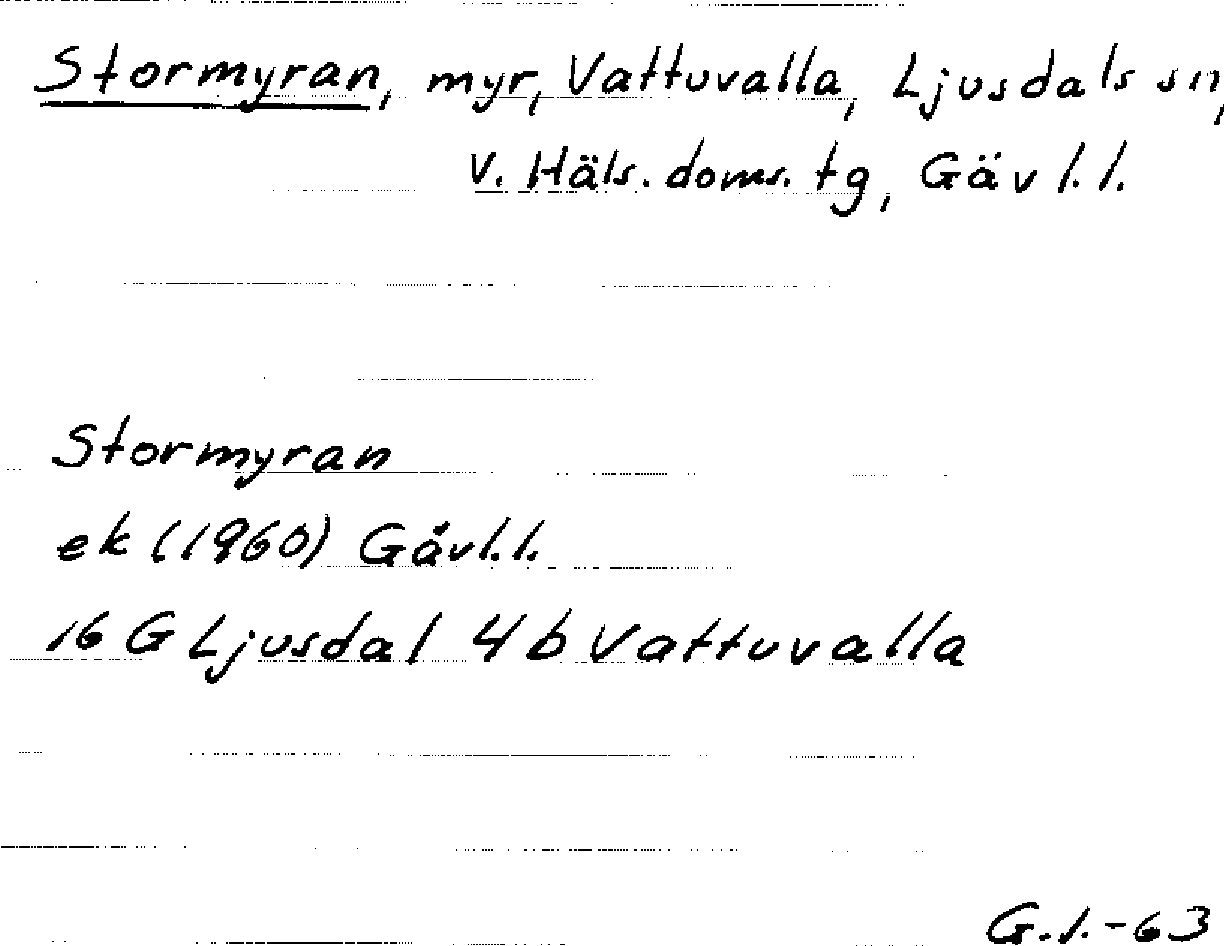 Stormyran, myr, Vattuvalla, Ljusdals sn,
V. Häls. doms. tg, Gävl.l.
Stormyran
ek (1960) Gävl.l.
16 G Ljusdal 4 b Vattuvalla
G.l.-63